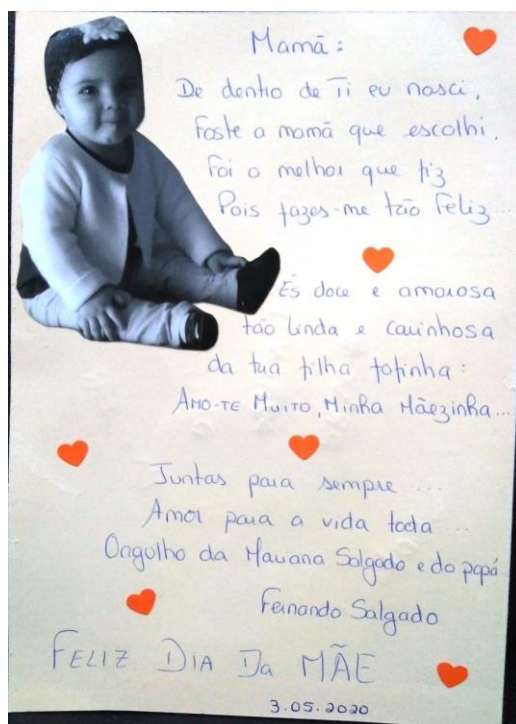 Mamã:
De dentro de Ti eu nasci,
Foste a mamã que escolhi,
Foi o melhor que fiz
Pois fazes-me tão Feliz...
És doce e amorosa
tão linda e carinhosa
da tua filha fofinha:
AMO-TE MUITO, MINHA MÃEZINHA...
Juntas para sempre...
Amor para a vida toda...
Orgulho da Mariana Salgado e do papá
Fernando Salgado
FELIZ DIA Da MÃE
3.05.2020